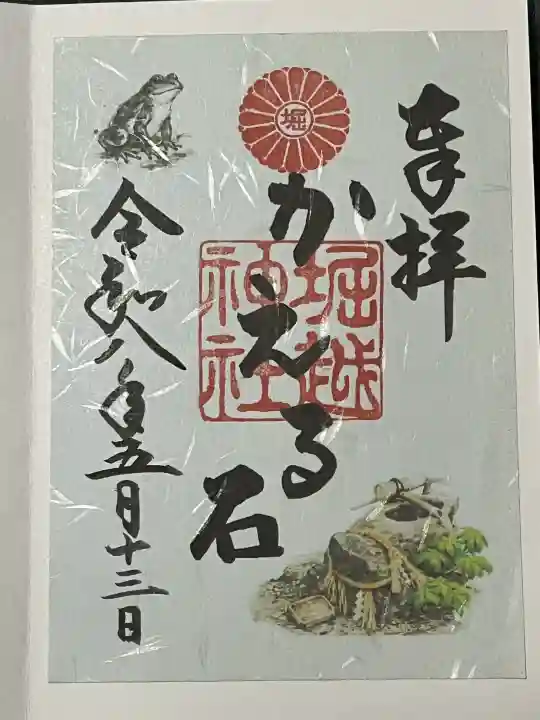 奉拝
堀
かえる石
堀越
神社
令和八年五月十三日